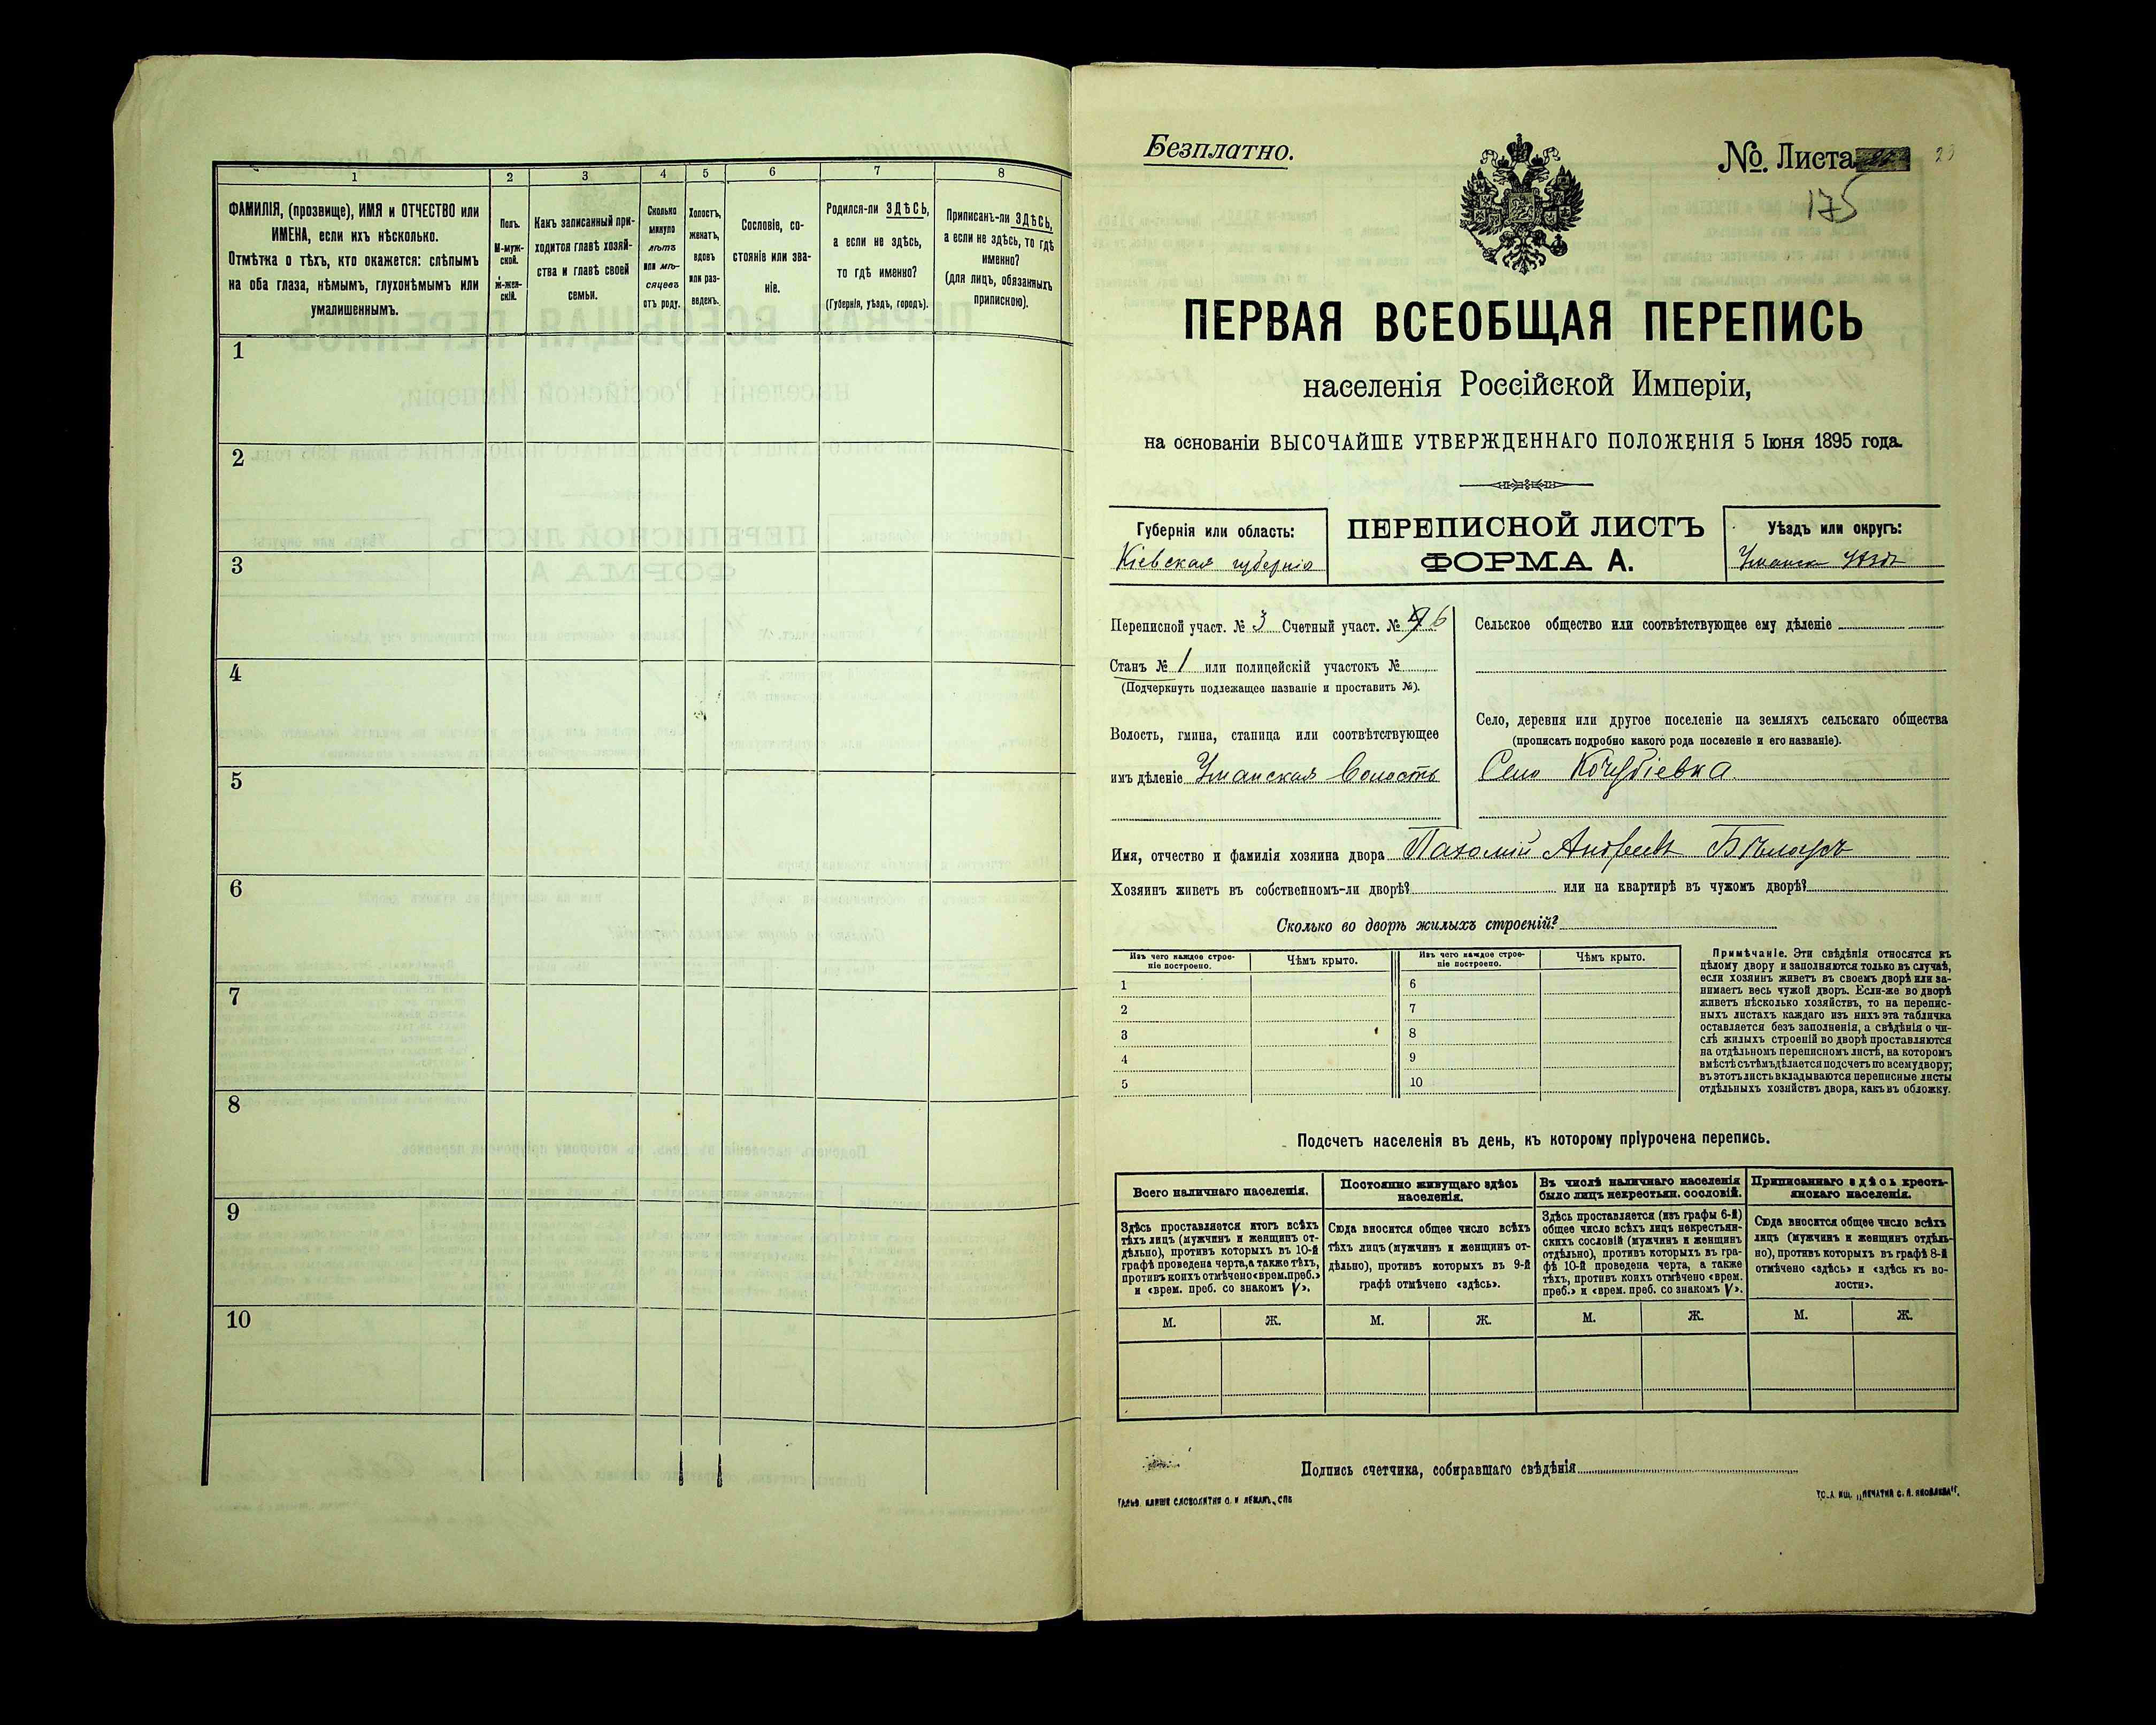 1
2
3
4
5
6
7
8
ФАМИЛІЯ, (прозвище), ИМЯ и ОТЧЕСТВО или
ИМЕНА, если ихъ нѣсколько.
Отмѣтка о тѣхъ, кто окажется: слѣпымъ
на оба глаза, нѣмымъ, глухонѣмымъ или
умалишеннымъ.
Полъ.
М-муж-
ской.
ж-жен-
скій.
Какъ записанный при-
ходится главѣ хозяй-
ства и главѣ своей
семьи.
Сколько
минуло
лѣтъ
или мѣ-
сяцевъ
отъ роду.
Холостъ,
женатъ,
вдовъ
или раз-
веденъ.
Сословіе, со-
стояніе или зва-
ніе.
Родился-ли ЗДѢСЬ,
а если не здѣсь,
то гдѣ именно?
(Губернія, уѣздъ, городъ).
Приписанъ-ли ЗДѢСЬ,
а если не здѣсь, то гдѣ
именно?
(для лицъ, обязанныхъ
припискою).
1
2
3
4
5
6
7
8
9
10
Безплатно.
№ Листа
175
ПЕРВАЯ ВСЕОБЩАЯ ПЕРЕПИСЬ
населенія Россійской Имперіи,
на основаніи ВЫСОЧАЙШЕ УТВЕРЖДЕННАГО ПОЛОЖЕНІЯ 5 Іюня 1895 года.
Губернія или область:
Кіевская губернія
ПЕРЕПИСНОЙ ЛИСТЪ
ФОРМА А.
Уѣздъ или округъ:
Переписной участ. № 3 Счетный участ. № 6
Станъ № 1 или полицейскій участокъ №
(Подчеркнуть подлежащее названіе и проставить №).
Волость, гмина, станица или соотвѣтствующее
имъ дѣленіе Уманская Волость
Сельское общество или соотвѣтствующее ему дѣленіе
Село, деревня или другое поселеніе на земляхъ сельскаго общества
(прописать подробно какого рода поселеніе и его названіе).
Село Кочубіевка
Имя, отчество и фамилія хозяина двора Пахомій Андреевъ Бѣлоусъ
Хозяинъ живетъ въ собственномъ-ли дворѣ? или на квартирѣ въ чужомъ дворѣ?
Сколько во дворѣ жилыхъ строеній?
Изъ чего каждое строе-
ніе построено.
Чѣмъ крыто.
Изъ чего каждое строе-
ніе построено.
Чѣмъ крыто.
1
2
3
4
5
6
7
8
9
10
Примѣчаніе. Эти свѣдѣнія относятся къ
цѣлому двору и заполняются только въ случаѣ,
если хозяинъ живетъ въ своемъ дворѣ или за-
нимаетъ весь чужой дворъ. Если-же во дворѣ
живетъ нѣсколько хозяйствъ, то на перепис-
ныхъ листахъ каждаго изъ нихъ эта табличка
оставляется безъ заполненія, а свѣдѣнія о чи-
слѣ жилыхъ строеній во дворѣ проставляются
на отдѣльномъ переписномъ листѣ, на которомъ
вмѣстѣ съ тѣмъ дѣлается подсчетъ по всему двору;
въ этотъ листъ вкладываются переписные листы
отдѣльныхъ хозяйствъ двора, какъ въ обложку.
Подсчетъ населенія въ день, къ которому пріурочена перепись.
Всего наличнаго населенія.
Постоянно живущаго здѣсь
населенія.
Въ числѣ наличнаго населенія
было лицъ некрестьян. сословій.
Приписаннаго здѣсь кресть-
янскаго населенія.
Здѣсь проставляется итогъ всѣхъ
тѣхъ лицъ (мужчинъ и женщинъ от-
дѣльно), противъ которыхъ въ 10-й
графѣ проведена черта, а также тѣхъ,
противъ коихъ отмѣчено «врем. преб.»
и «врем. преб. со знакомъ V».
Сюда вносится общее число всѣхъ
тѣхъ лицъ (мужчинъ и женщинъ от-
дѣльно), противъ которыхъ въ 9-й
графѣ отмѣчено «здѣсь».
Здѣсь проставляется (изъ графы 6-й)
общее число всѣхъ лицъ некрестьян-
скихъ сословій (мужчинъ и женщинъ
отдѣльно), противъ которыхъ въ гра-
фѣ 10-й проведена черта, а также
тѣхъ, противъ коихъ отмѣчено «врем.
преб.» и «врем. преб. со знакомъ V».
Сюда вносится общее число всѣхъ
лицъ (мужчинъ и женщинъ отдѣль-
но), противъ которыхъ въ графѣ 8-й
отмѣчено «здѣсь» и «здѣсь къ во-
лости».
М.
Ж.
М.
Ж.
М.
Ж.
М.
Ж.
Подпись счетчика, собиравшаго свѣдѣнія